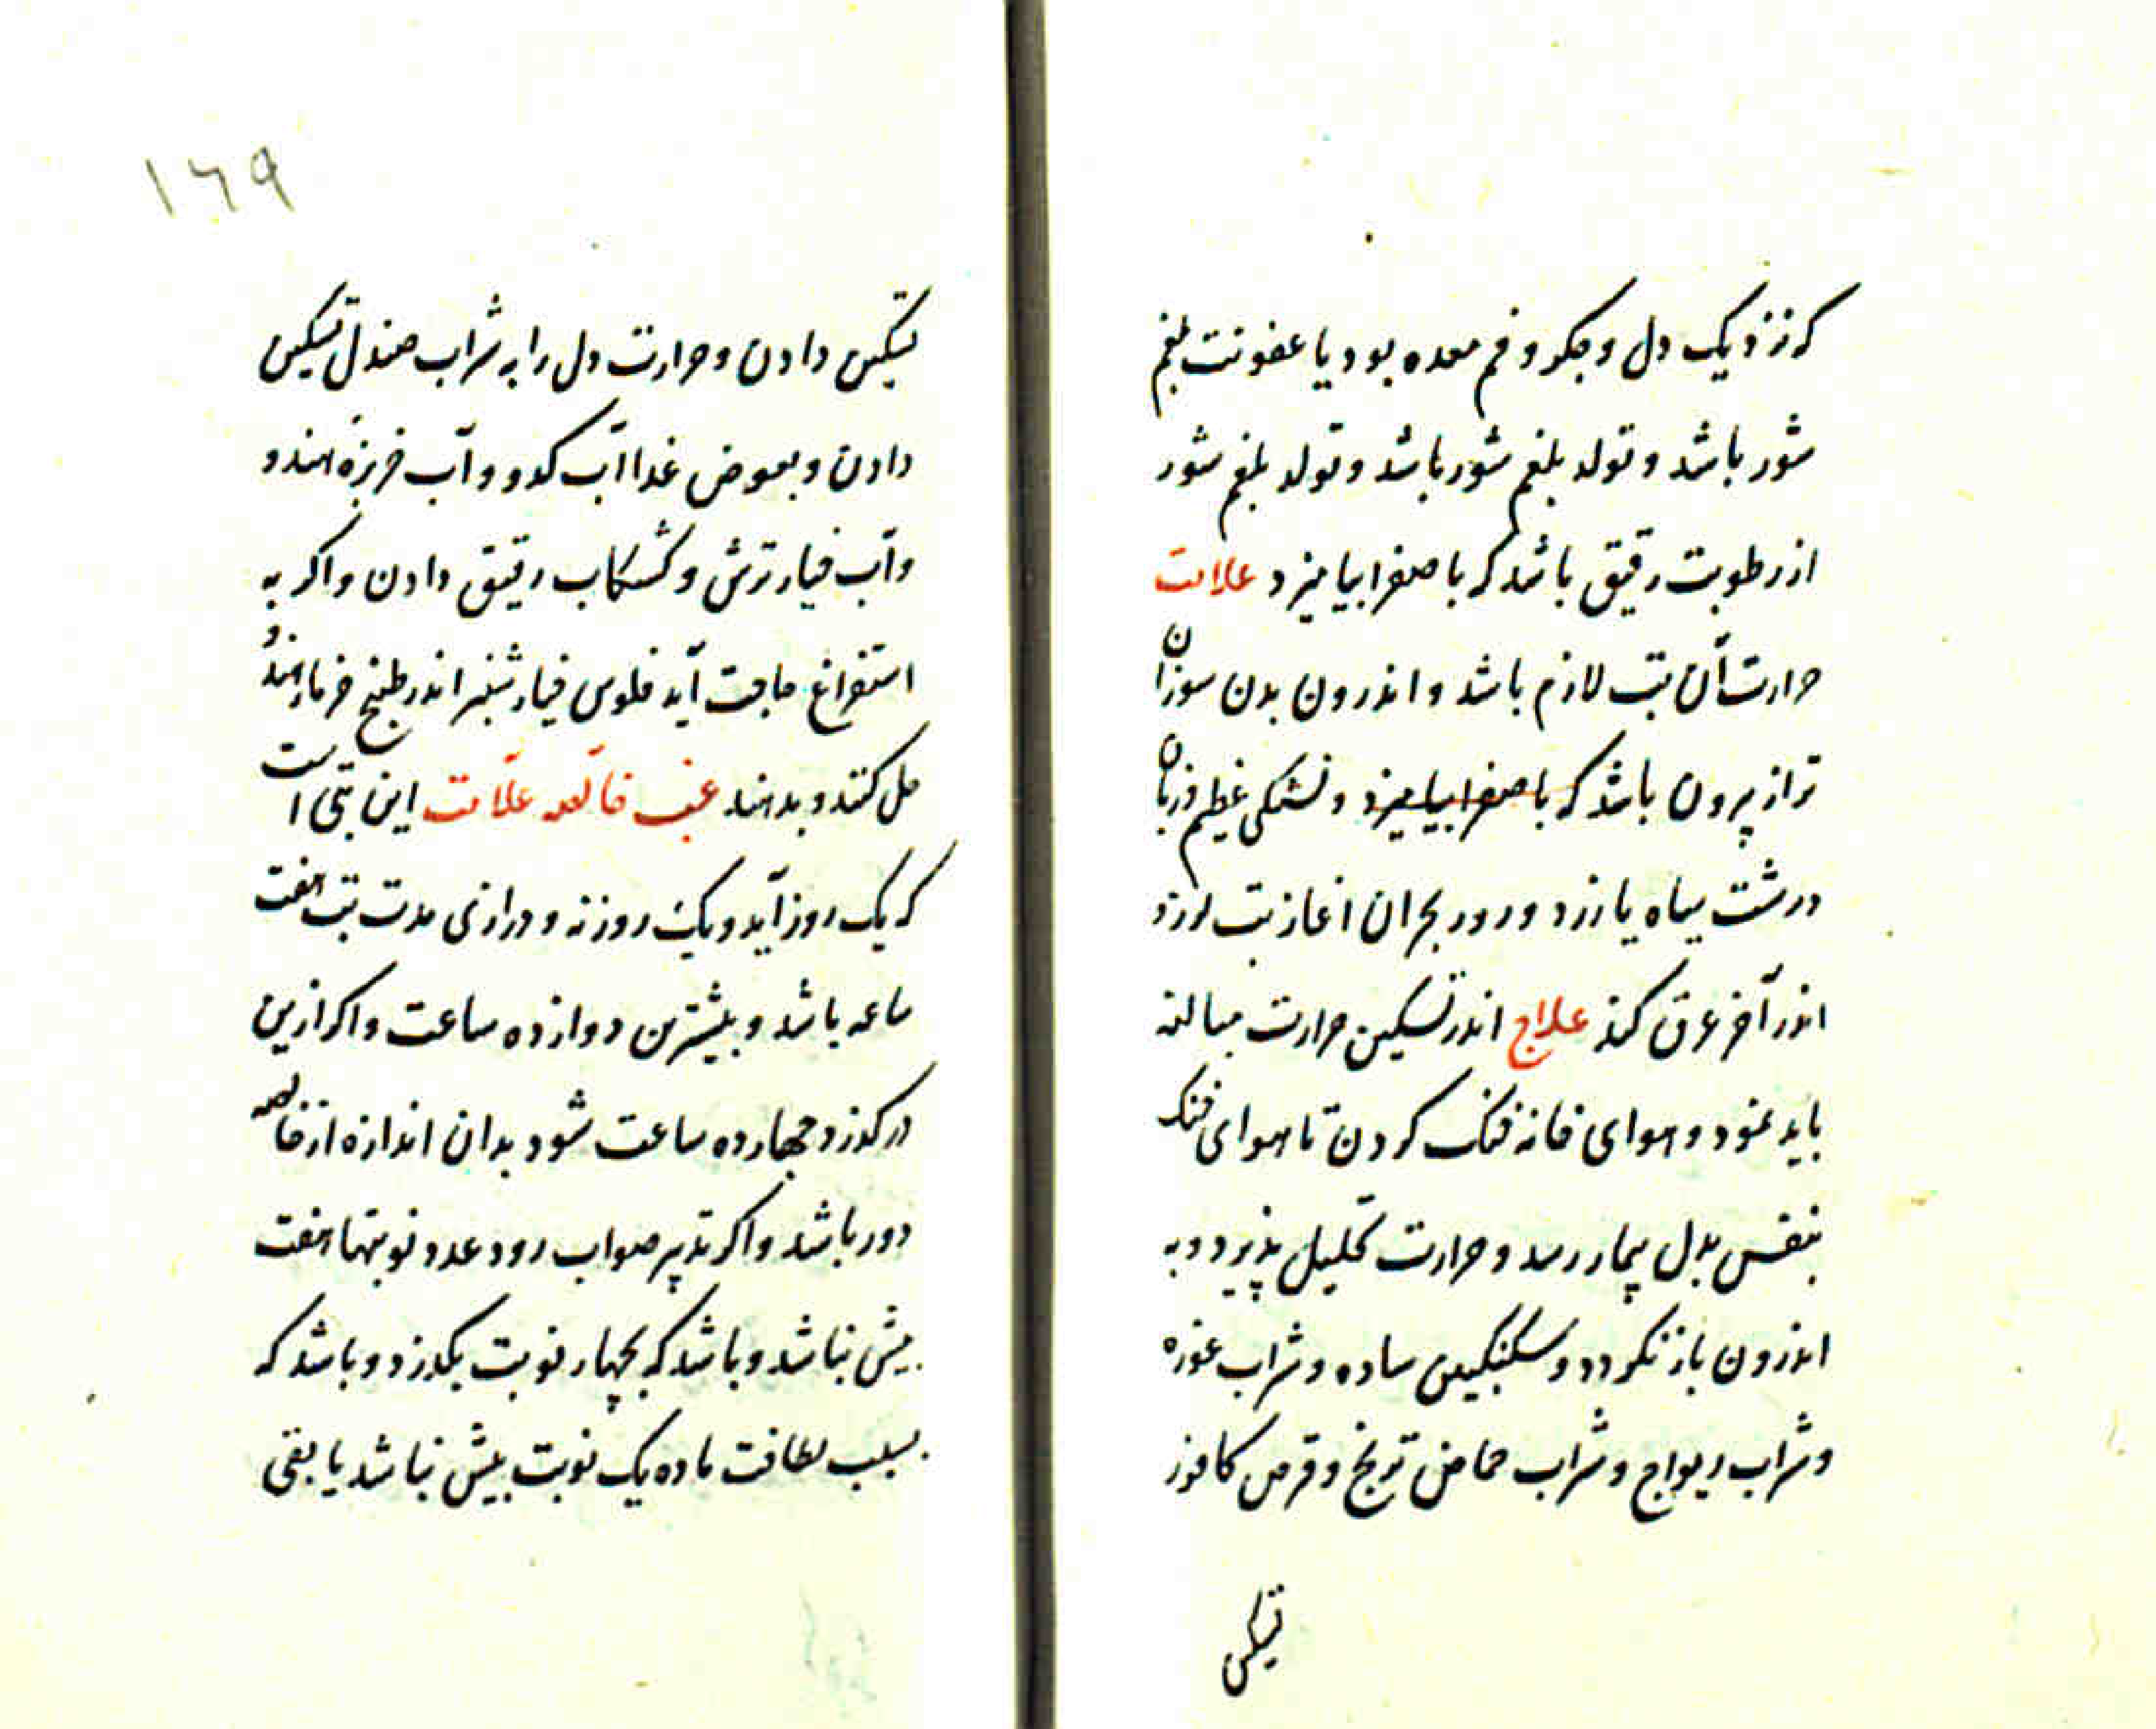 که نزدیک دل و جکر و فم معده بود یا عفونت بلغم
شور باشد و تولد بلغم شور باشد و تولد بلغم شور
از رطوبت رقیق باشد که با صفرا بیامیزد علامت
حرارت آن تب لازم باشد و اندرون بدن سوزان
تر از بیرون باشد که با صفرا بیامیزد و تشنکی عظیم و زبان
درشت سیاه یا زرد و روز بحران اغاز تب لرزد
اندر آخر عرق کند علاج اندر تسکین حرارت مبالغه
باید نمود و هوای خانه خنک کردن تا هوای خنک
بنفس بدل بیمار رسد و حرارت تحلیل پذیرد و به
اندرون باز نکردد و سکنکبین ساده و شراب غوره
و شراب ریواج و شراب حماض ترنج و قرص کافور
تسکین
١٦٩
تسکین دادن و حرارت دل را به شراب صندل تسکین
دادن و بعوض غذا اب کدو و آب خربزه هندو
و آب خیار ترش و کشکاب رقیق دادن و اکر به
استفراغ حاجت آید فلوس خیارشنبر اندر طبیخ خرما هندو
حل کنند و بدهند غب خالصه علامت این تبی است
که یک روز آید و یک روز نه و درازی مدت تب هفت
ساعه باشد و بیشترین دوازده ساعت و اکر ازین
درکذرد چهارده ساعت شود بدان اندازه از خالصه
دور باشد و اکر تدبیر صواب رود عدد نوبتها هفت
بیش نباشد و باشد که بچهار نوبت بکذرد و باشد که
بسبب لطافت ماده یک نوبت بیش نباشد یا بقی